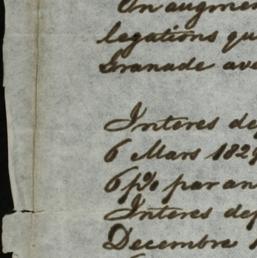 En augmen
legations qu
Grenade ave
Interes de
6 Mars 182
6 p% par an
Interes dep
Decembre 1